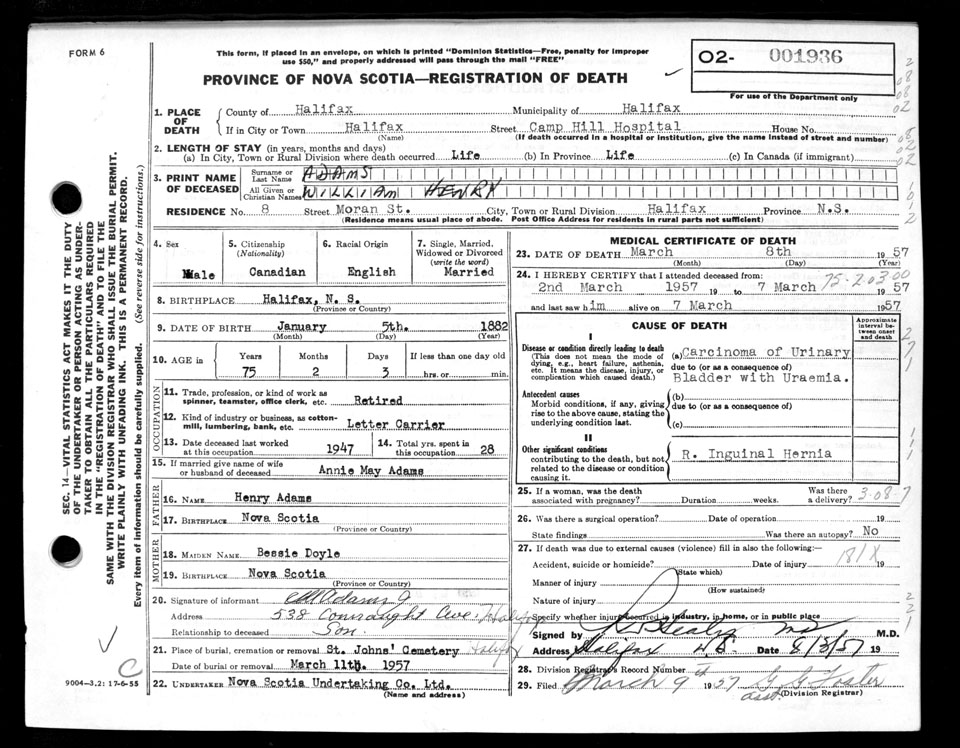 FORM 6
This form, if placed in an envelope, on which is printed "Dominion Statistics—Free, penalty for improper
use $50," and properly addressed will pass through the mail "FREE"
PROVINCE OF NOVA SCOTIA—REGISTRATION OF DEATH
O2- 001936
For use of the Department only
1. PLACE OF DEATH
County of Halifax Municipality of Halifax
If in City or Town Halifax Street Camp Hill Hospital House No.
(Name) (If death occurred in a hospital or institution, give the name instead of street and number)
2. LENGTH OF STAY (in years, months and days)
(a) In City, Town or Rural Division where death occurred Life (b) In Province Life (c) In Canada (if immigrant)
3. PRINT NAME OF DECEASED
Surname or Last Name ADAMS
All Given or Christian Names WILLIAM HENRY
RESIDENCE No. 8 Street Moran St. City, Town or Rural Division Halifax Province N.S.
(Residence means usual place of abode. Post Office Address for residents in rural parts not sufficient)
4. Sex Male
5. Citizenship (Nationality) Canadian
6. Racial Origin English
7. Single, Married, Widowed or Divorced (write the word) Married
8. BIRTHPLACE Halifax, N. S.
(Province or Country)
9. DATE OF BIRTH January 5th. 1882
(Month) (Day) (Year)
10. AGE in Years Months Days If less than one day old
75 2 3 hrs. or min.
OCCUPATION
11. Trade, profession, or kind of work as
spinner, teamster, office clerk, etc. Retired
12. Kind of industry or business, as cotton-
mill, lumbering, bank, etc. Letter Carrier
13. Date deceased last worked
at this occupation 1947
14. Total yrs. spent in
this occupation 28
15. If married give name of wife
or husband of deceased Annie May Adams
FATHER
16. NAME Henry Adams
17. BIRTHPLACE Nova Scotia
(Province or Country)
MOTHER
18. MAIDEN NAME Bessie Doyle
19. BIRTHPLACE Nova Scotia
(Province or Country)
20. Signature of informant Adams
Address 538 Connaught Ave. Halifax
Relationship to deceased Son
21. Place of burial, cremation or removal St. Johns' Cemetery Halifax
Date of burial or removal March 11th. 1957
22. UNDERTAKER Nova Scotia Undertaking Co. Ltd.
(Name and address)
MEDICAL CERTIFICATE OF DEATH
23. DATE OF DEATH March 8th 1957
(Month) (Day) (Year)
24. I HEREBY CERTIFY that I attended deceased from:
75-20300
2nd March 1957 to 7 March 1957
and last saw him alive on 7 March 1957
CAUSE OF DEATH
Approximate interval between onset and death
I
Disease or condition directly leading to death
(This does not mean the mode of
dying, e.g., heart failure, asthenia,
etc. It means the disease, injury, or
complication which caused death.)
(a) Carcinoma of Urinary
due to (or as a consequence of)
Bladder with Uraemia.
Antecedent causes
Morbid conditions, if any, giving
rise to the above cause, stating the
underlying condition last.
(b)
due to (or as a consequence of)
(c)
II
Other significant conditions
contributing to the death, but not
related to the disease or condition
causing it.
R. Inguinal Hernia
25. If a woman, was the death
associated with pregnancy? Duration weeks. Was there
a delivery?
3-08-7
26. Was there a surgical operation? Date of operation 19
State findings Was there an autopsy? No
27. If death was due to external causes (violence) fill in also the following:—
Accident, suicide or homicide? Date of injury 19
181X
(State which)
Manner of injury
(How sustained)
Nature of injury
Specify whether injury occurred in industry, in home, or in public place
Signed by M.D.
Address Halifax N.S. Date 8/3/57 19
28. Division Registrar's Record Number
29. Filed March 9th 1957 G G Foster
asst. (Division Registrar)
SEC. 14—VITAL STATISTICS ACT MAKES IT THE DUTY
OF THE UNDERTAKER OR PERSON ACTING AS UNDER-
TAKER TO OBTAIN ALL THE PARTICULARS REQUIRED
IN THE "REGISTRATION OF DEATH" AND TO FILE THE
SAME WITH THE DIVISION REGISTRAR WHO SHALL ISSUE THE BURIAL PERMIT.
WRITE PLAINLY WITH UNFADING INK. THIS IS A PERMANENT RECORD.
Every item of information should be carefully supplied. (See reverse side for instructions.)
C
9004-3,2: 17-6-55